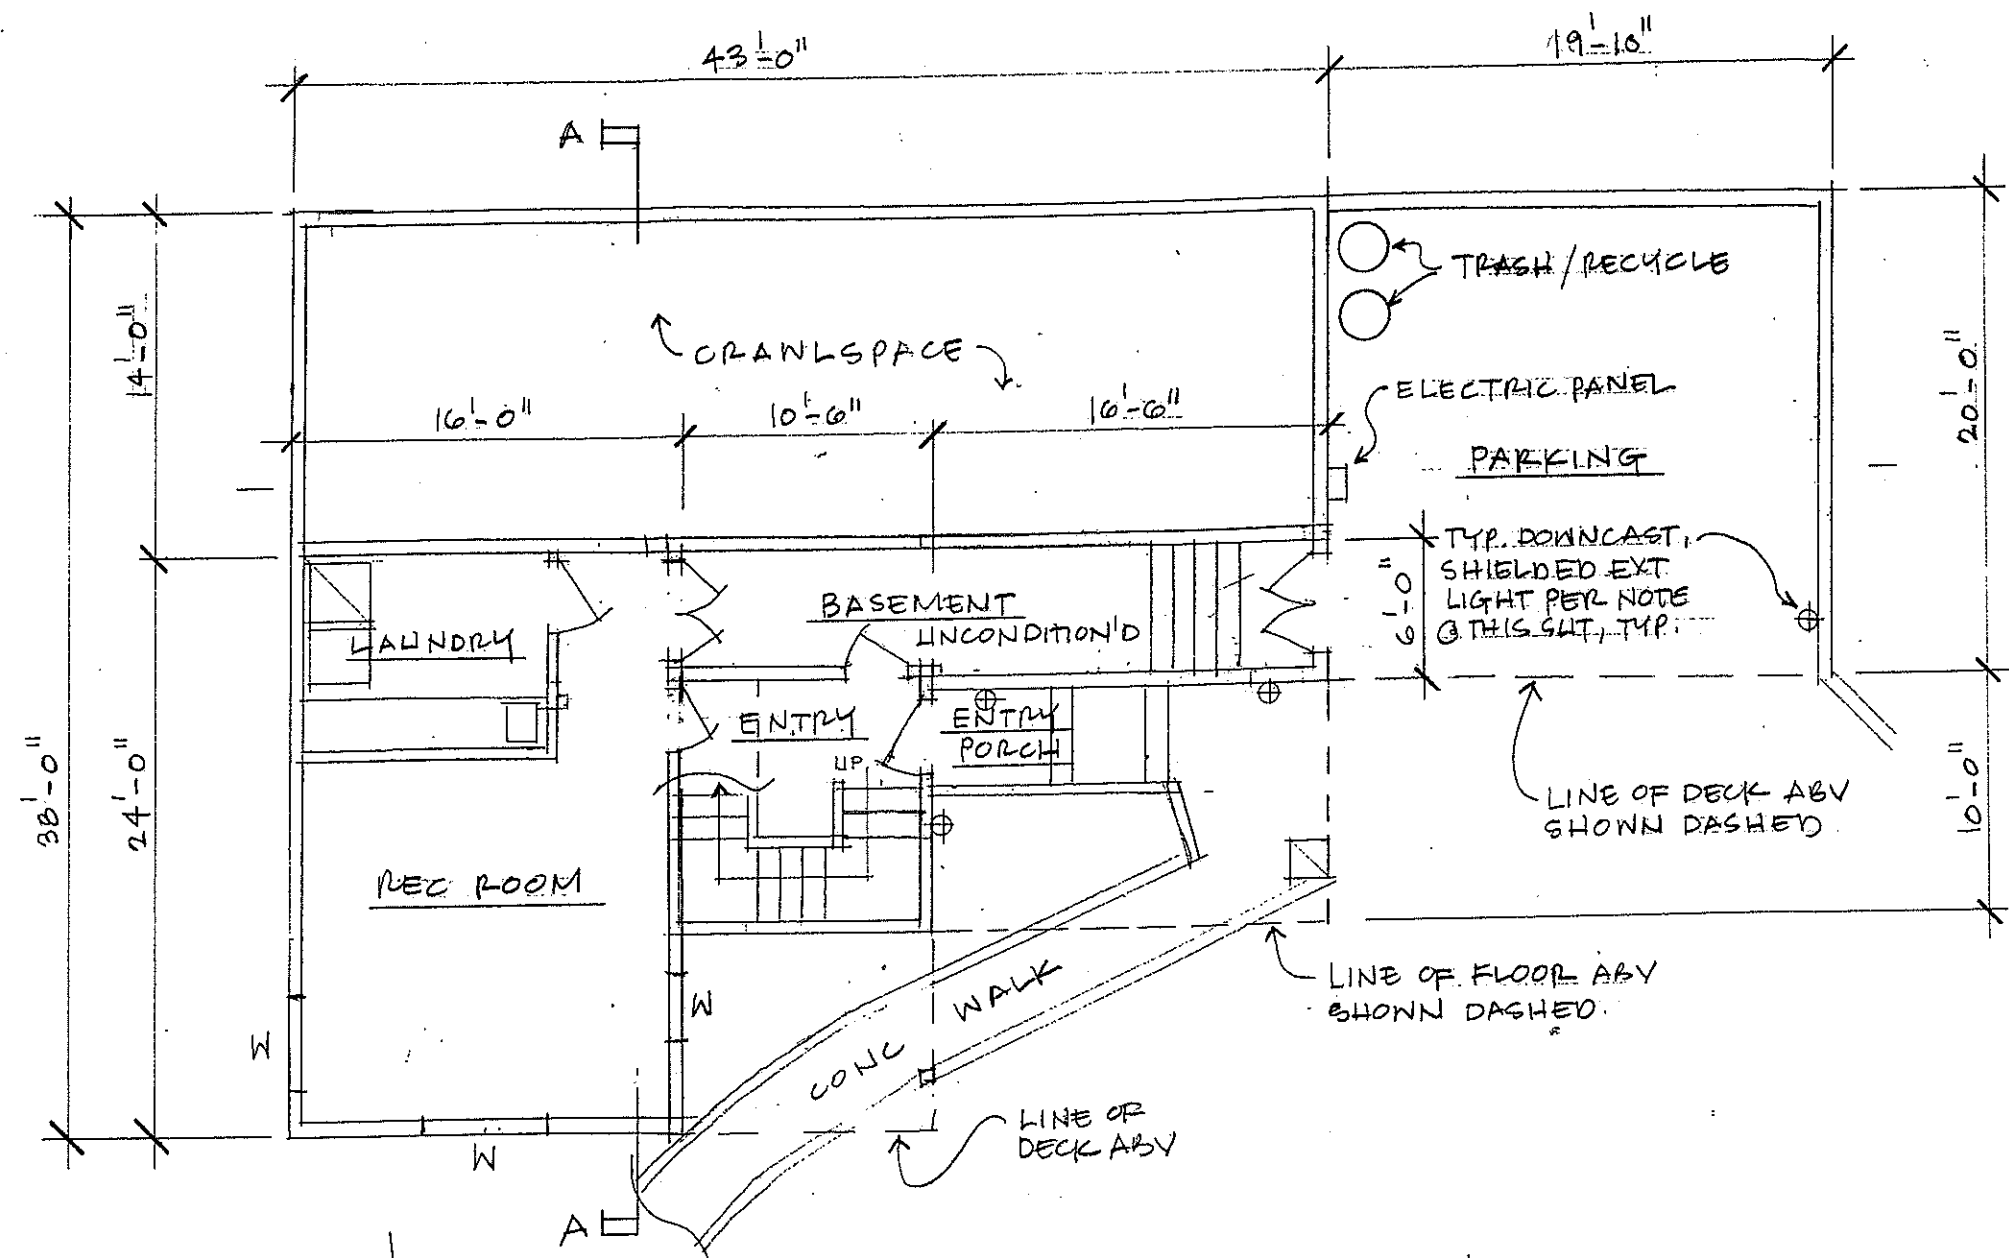 43'-0"
19'-10"
A
TRASH/RECYCLE
14'-0"
CRAWLSPACE
20'-0"
ELECTRIC PANEL
16'-0"
10'-6"
16'-6"
PARKING
TYP. DOWNCAST,
SHIELDED EXT
LIGHT PER NOTE
@ THIS SHT, TYP.
6'-0"
BASEMENT
UNCONDITION'D
LAUNDRY
ENTRY
ENTRY
PORCH
UP
38'-0"
24'-0"
10'-0"
LINE OF DECK ABV
SHOWN DASHED
REC ROOM
LINE OF FLOOR ABV
SHOWN DASHED.
W
WALK
W
CONC
LINE OF
DECK ABV
W
A